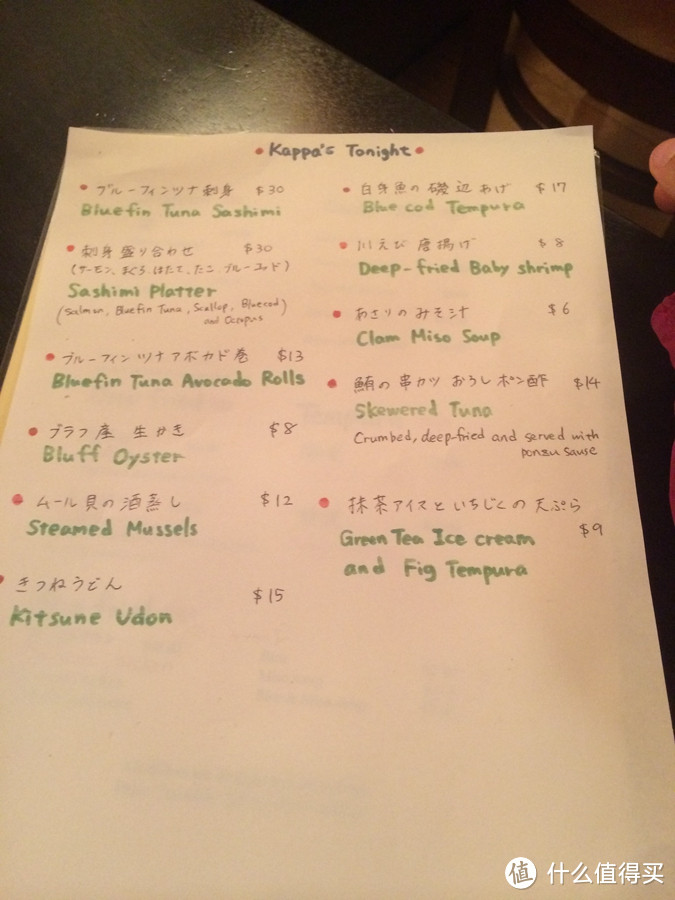 • Kappa's Tonight •
• ブルーフィンツナ刺身 $30
Bluefin Tuna Sashimi
• 刺身盛り合わせ $30
(サーモン、まぐろ、ほたて、たこ ブルーコッド)
Sashimi Platter
(Salmon, Bluefin Tuna, Scallop, Bluecod)
and Octopus
• ブルーフィン ツナアボカド巻 $13
Bluefin Tuna Avocado Rolls
• ブラフ産 生かき $8
Bluff Oyster
• ムール貝の酒蒸し $12
Steamed Mussels
• きつねうどん
$15
Kitsune Udon
• 白身魚の磯辺あげ $17
Blue cod Tempura
• 川えび 唐揚げ $8
Deep-fried Baby shrimp
• あさりのみそ汁 $6
Clam Miso Soup
• 鮪の串カツ おろしポン酢 $14
Skewered Tuna
Crumbed, deep-fried and served with
ponzu sause
• 抹茶アイスといちじくの天ぷら
Green Tea Ice cream $9
and Fig Tempura
值 什么值得买